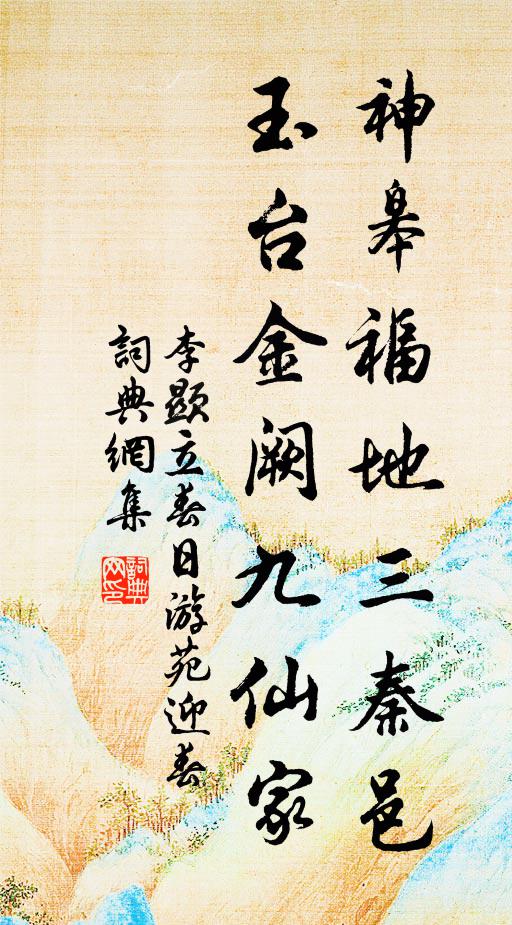 神皋福地三秦邑
玉台金阙九仙家
李顯立春日游苑迎春
詞典網集
詞典网印